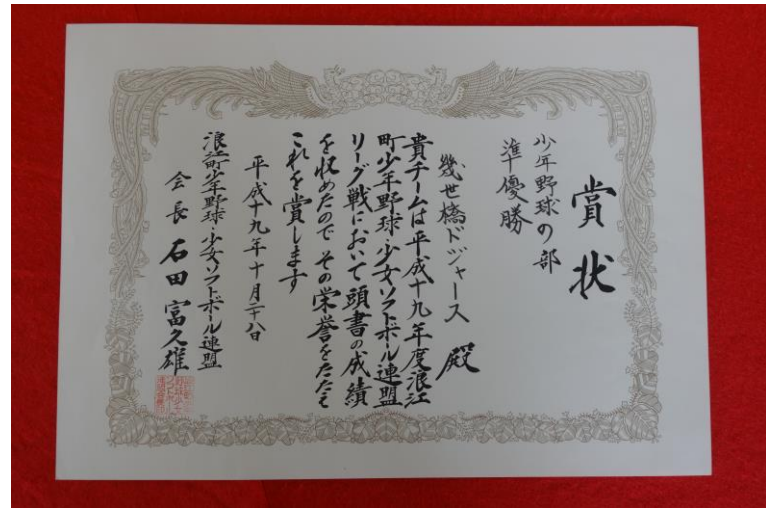 賞状
少年野球の部
準優勝
幾世橋ドジャース 殿
貴チームは平成十九年度浪江
町少年野球・少女ソフトボール連盟
リーグ戦において頭書の成績
を収めたので その栄誉をたたえ
これを賞します
平成十九年十月二十八日
浪江町少年野球・少女ソフトボール連盟
会長 石田富久雄